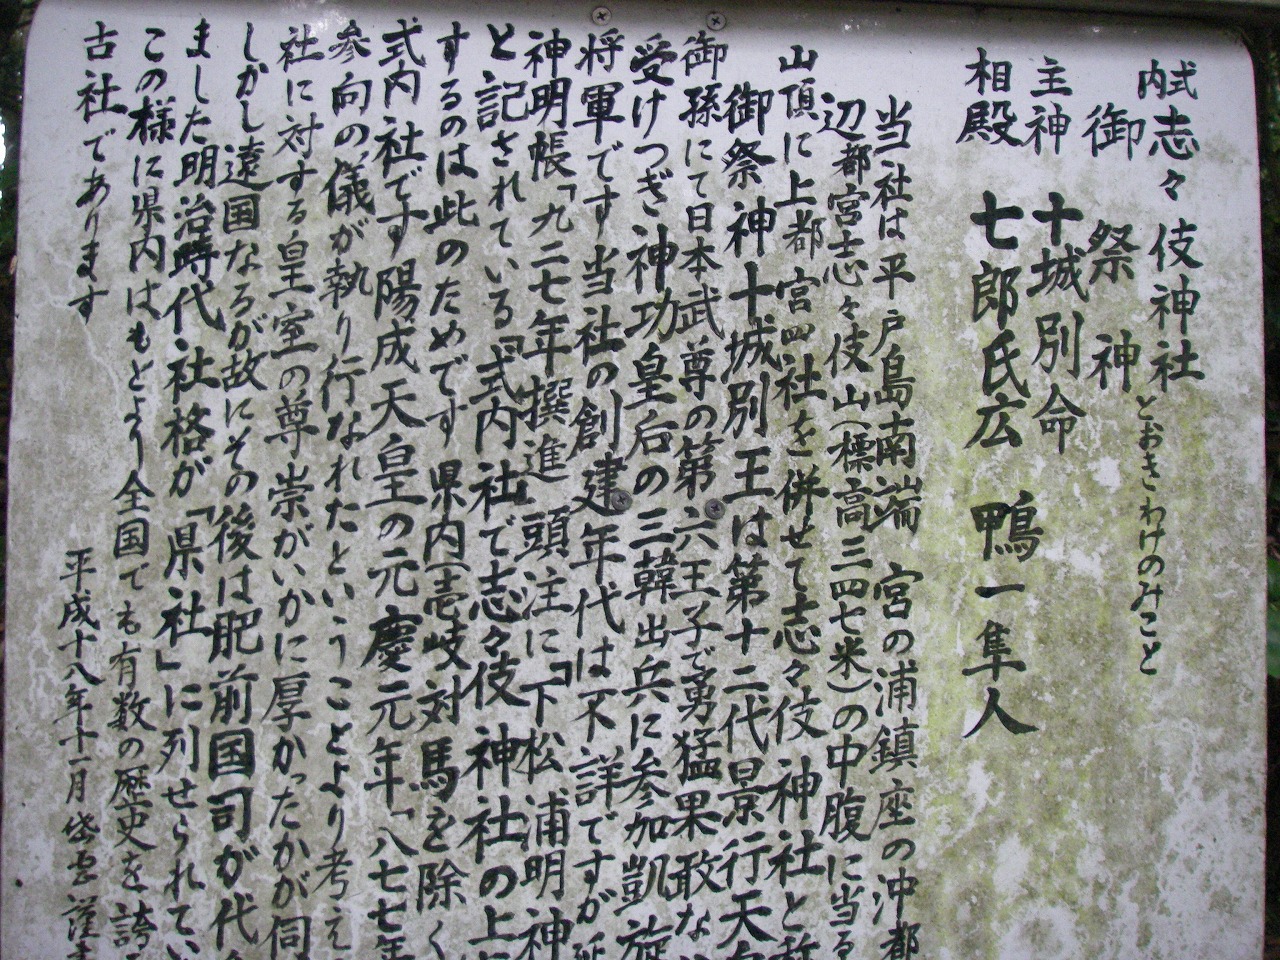 式内 志々伎神社
御祭神
主神 十城別命 とおきわけのみこと
相殿 七郎氏広 鴨一隼人
当社は平戸島南端 宮の浦鎮座の沖都
辺都宮志々伎山(標高三四七米)の中腹に当る
山頂に上都宮四社を併せて志々伎神社と称
御祭神十城別王は第十二代景行天
御孫にて日本武尊の第六王子で勇猛果敢な
受けつぎ神功皇后の三韓出兵に参加凱旋
将軍です当社の創建年代は不詳ですが延
神明帳「九二七年撰進」頭注に「下松浦明神
と記されている「式内社で志々伎神社の上
するのは此のためです県内(壱岐対馬を除く
式内社です陽成天皇の元慶元年「八七七年
参向の儀が執り行なれたということより考え
社に対する皇室の尊崇がいかに厚かったかが伺
しかし遠国なるが故にその後は肥前国司が代
ました明治時代 社格が「県社」に列せられてい
この様に県内はもとより全国でも有数の歴史を誇
古社であります
平成十八年十一月 謹